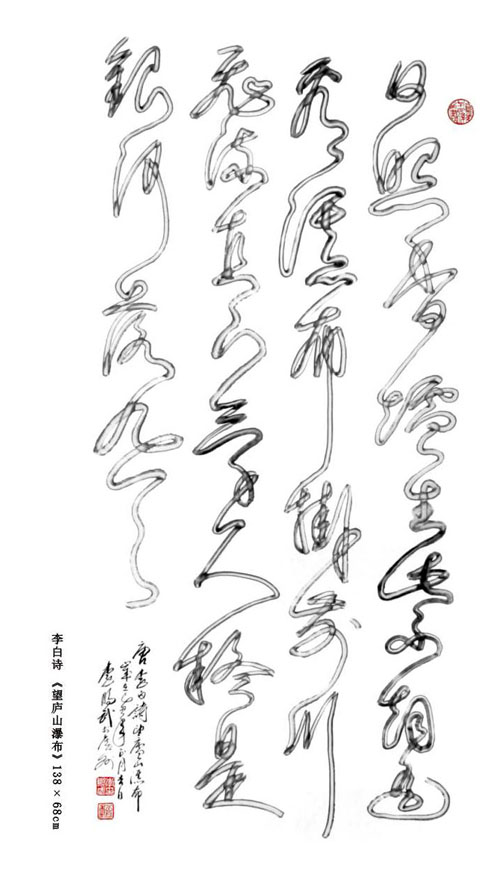 日照香爐生紫烟遥
看瀑布掛前川
飛流直下三千尺疑是
銀河落九天
唐李白詩廬山瀑布
李白诗 《望庐山瀑布》138×68cm